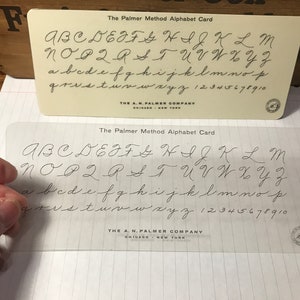 The Palmer Method Alphabet Card
A B C D E F G H I J K L M
N O P Q R S T U V W X Y Z
a b c d e f g h i j k l m n o p
q r s t u v w x y z 1 2 3 4 5 6 7 8 9 10
THE A. N. PALMER COMPANY
CHICAGO - NEW YORK
The Palmer Method Alphabet Card
A B C D E F G H I J K L M
N O P Q R S T U V W X Y Z
a b c d e f g h i j k l m n o p
q r s t u v w x y z 1 2 3 4 5 6 7 8 9 10
THE A. N. PALMER COMPANY
CHICAGO - NEW YORK